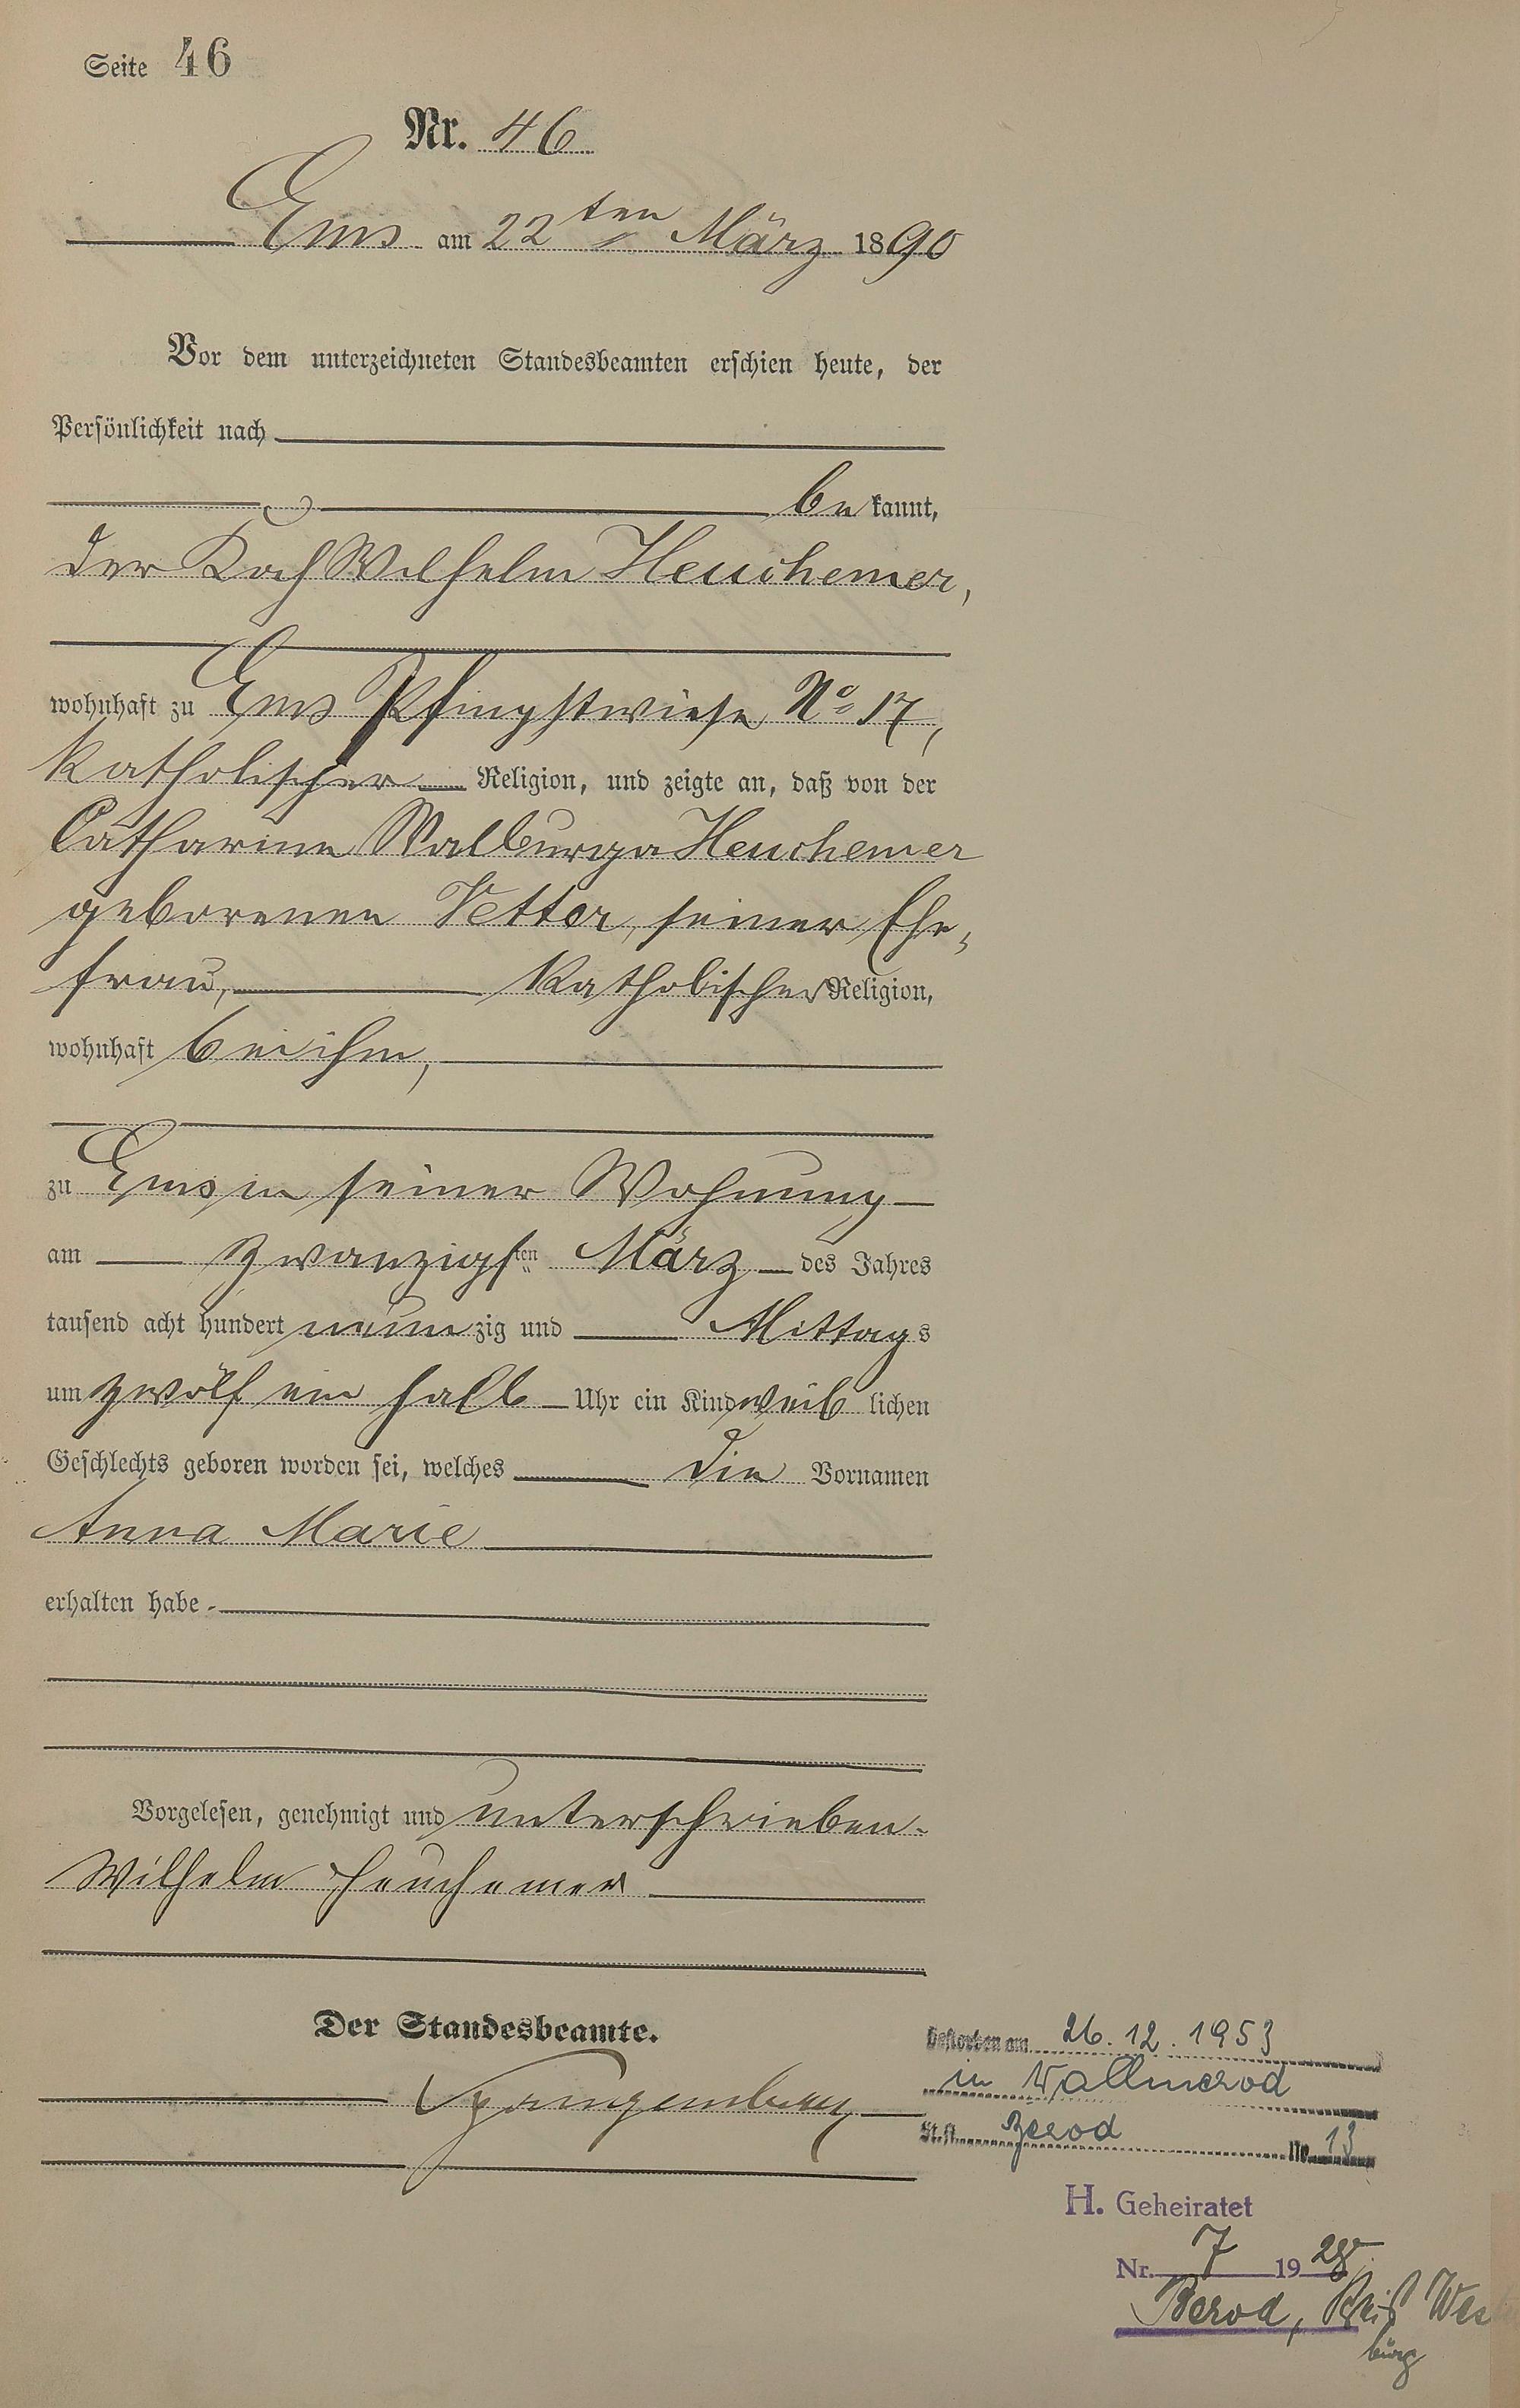 Seite 46
Nr. 46
Ems am 22ten März 1890
Vor dem unterzeichneten Standesbeamten erschien heute, der
Persönlichkeit nach
bekannt,
der Koch Wilhelm Heuchemer,
wohnhaft zu Ems Pfingstwiese No 17,
katholischer Religion, und zeigte an, daß von der
Catharina Walburga Heuchemer
geborenen Vetter, seiner Ehe-
frau, katholischer Religion,
wohnhaft bei ihm,
zu Ems in seiner Wohnung
am zwanzigsten März des Jahres
tausend acht hundert neunzig und Mittags
um zwölf ein halb Uhr ein Kind weiblichen
Geschlechts geboren worden sei, welches die Vornamen
Anna Marie
erhalten habe.
Vorgelesen, genehmigt und unterschrieben.
Wilhelm Heuchemer
Der Standesbeamte.
Spangenberg
Gestorben am 26.12.1953
in Wallmerod
St.A. Berod Nr. 13
H. Geheiratet
Nr. 7 1928
Berod, Kreis Wester
burg